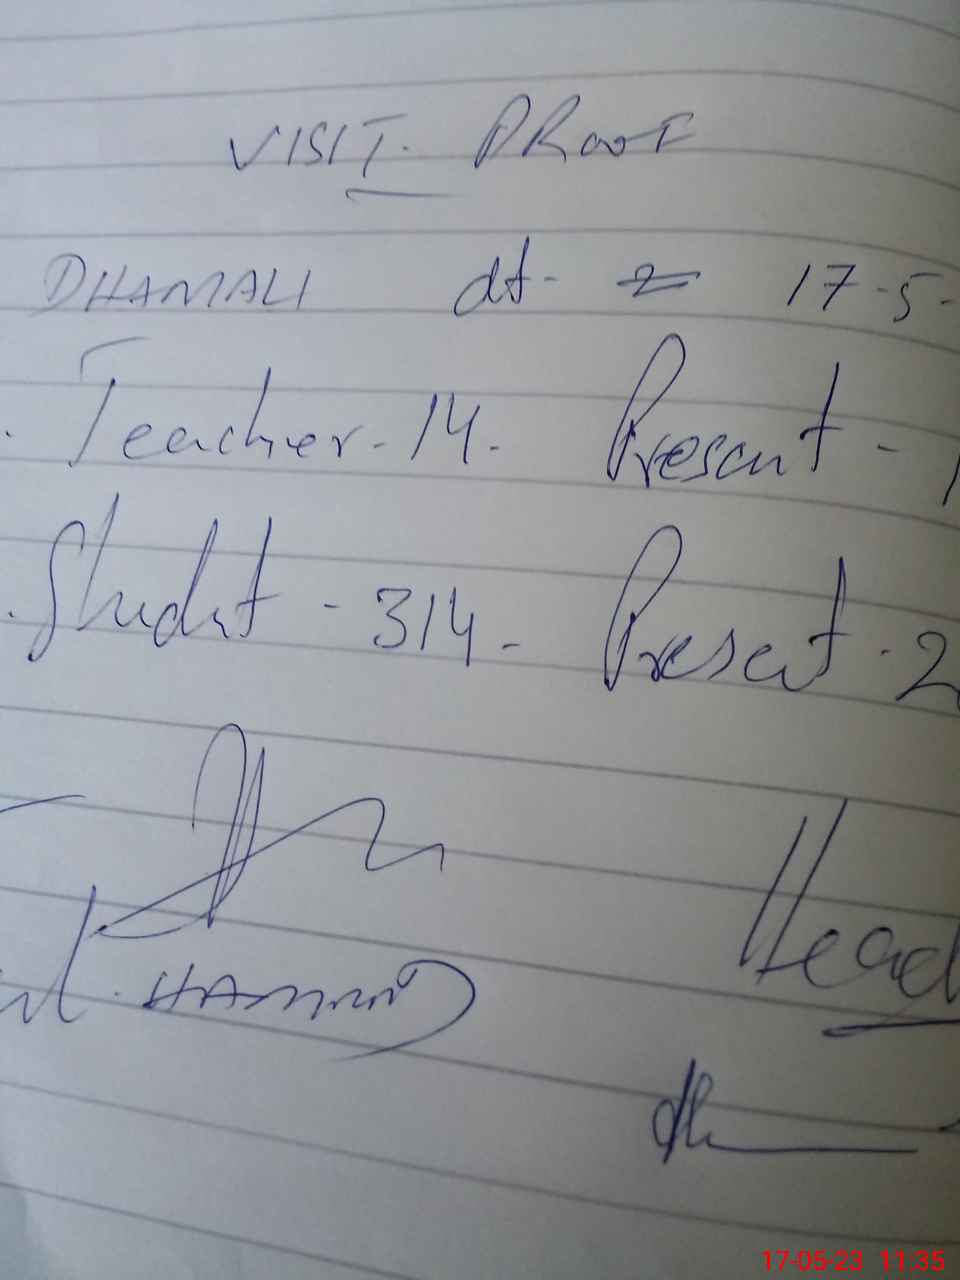 VISIT. PROOF
DHAMALI dt- 17-5-
Teacher-14. Present - 1
Studnt - 314 - Present - 2
Head
17-05-23 11:35